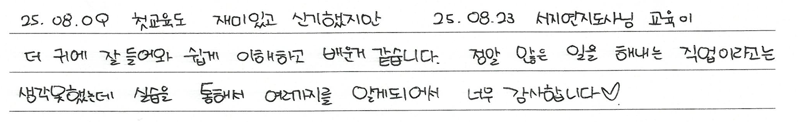 25. 08. 09 첫교육도 재미있고 신기했지만 25. 08. 23 서지연지도사님 교육이
더 귀에 잘 들어와 쉽게 이해하고 배운거 같습니다. 정말 많은 일을 해내는 직업이라고는
생각못했는데 실습을 통해서 여러가지를 알게되어서 너무 감사합니다♡